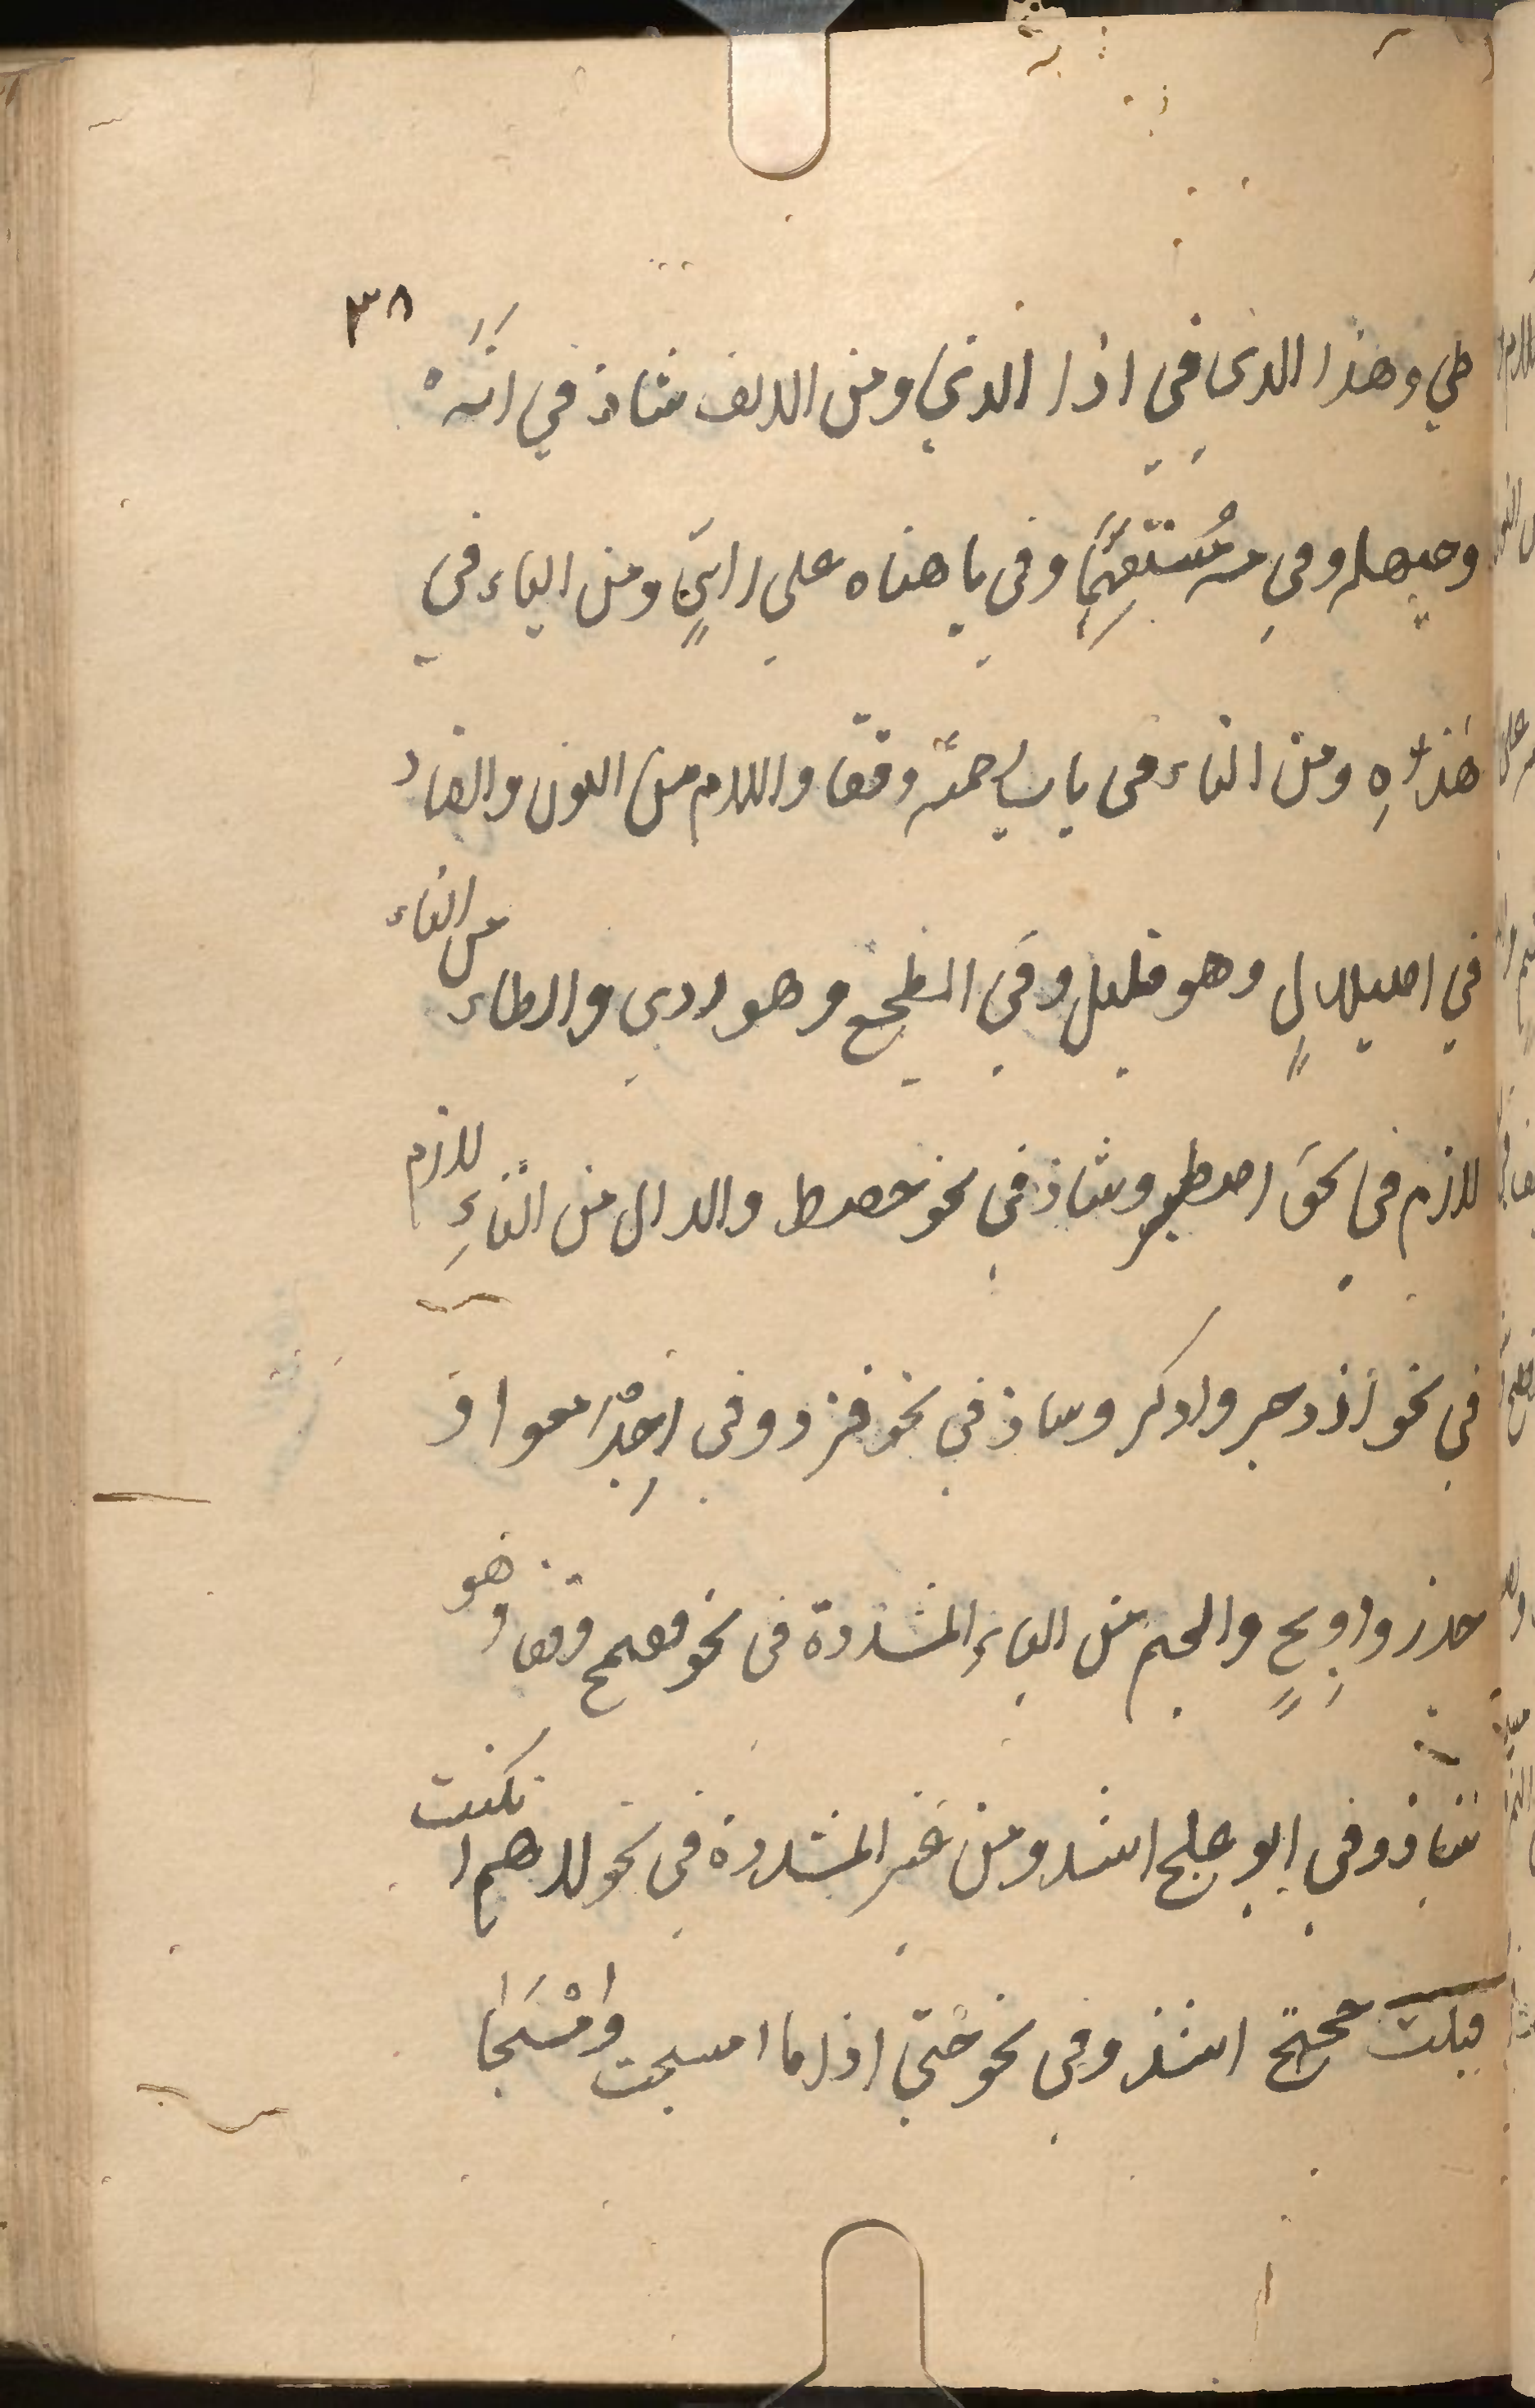 ٣٨
طي وهذا الذى في اذا الذي ومن الالف شاذ في انَهْ
وحيهله وفي مه مُستفهِمًا وفي يا هناه على رايٍ ومن الياء في
هذه ومن التاء في باب رحمه وقفا واللام من النون والضاد
في اصيلالٍ وهو قليل وفي الطجع وهو ردى والطاء من التاء
لازم في نحو اصطبر وشاذ في نحو حصط والدال من التاءِ لازم
في نحو ازدجر وادكر وشاذ في نحو فزد وفي اجدمعوا و
جدز ودولج والجيم من الياء المشددة في نحو فقيمج وقفا وهو
شاذ وفي ابو علج اشذ ومن غير المشددة في نحو لاهم ان كنت
قبلت حجتج اشذ وفي نحو حتى اذا ما امسجت وامْسَجَا